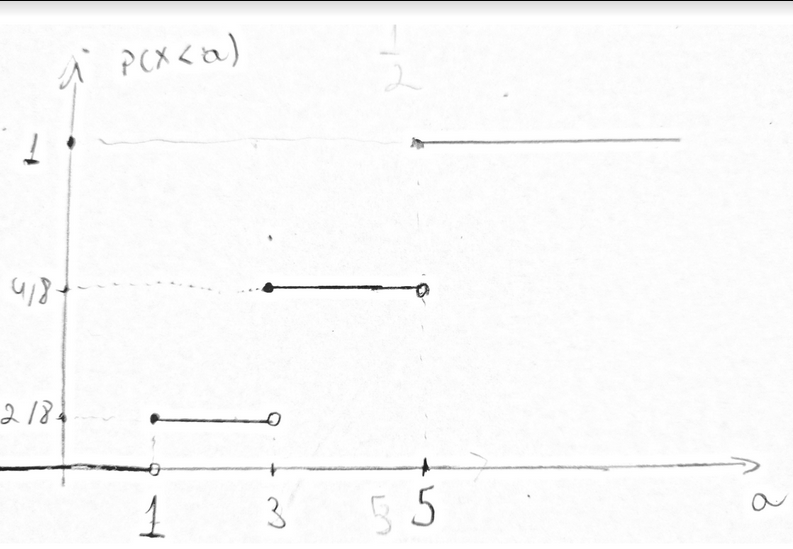 P(X<a)
1
2
1
4/8
2/8
1 3 5 5
a